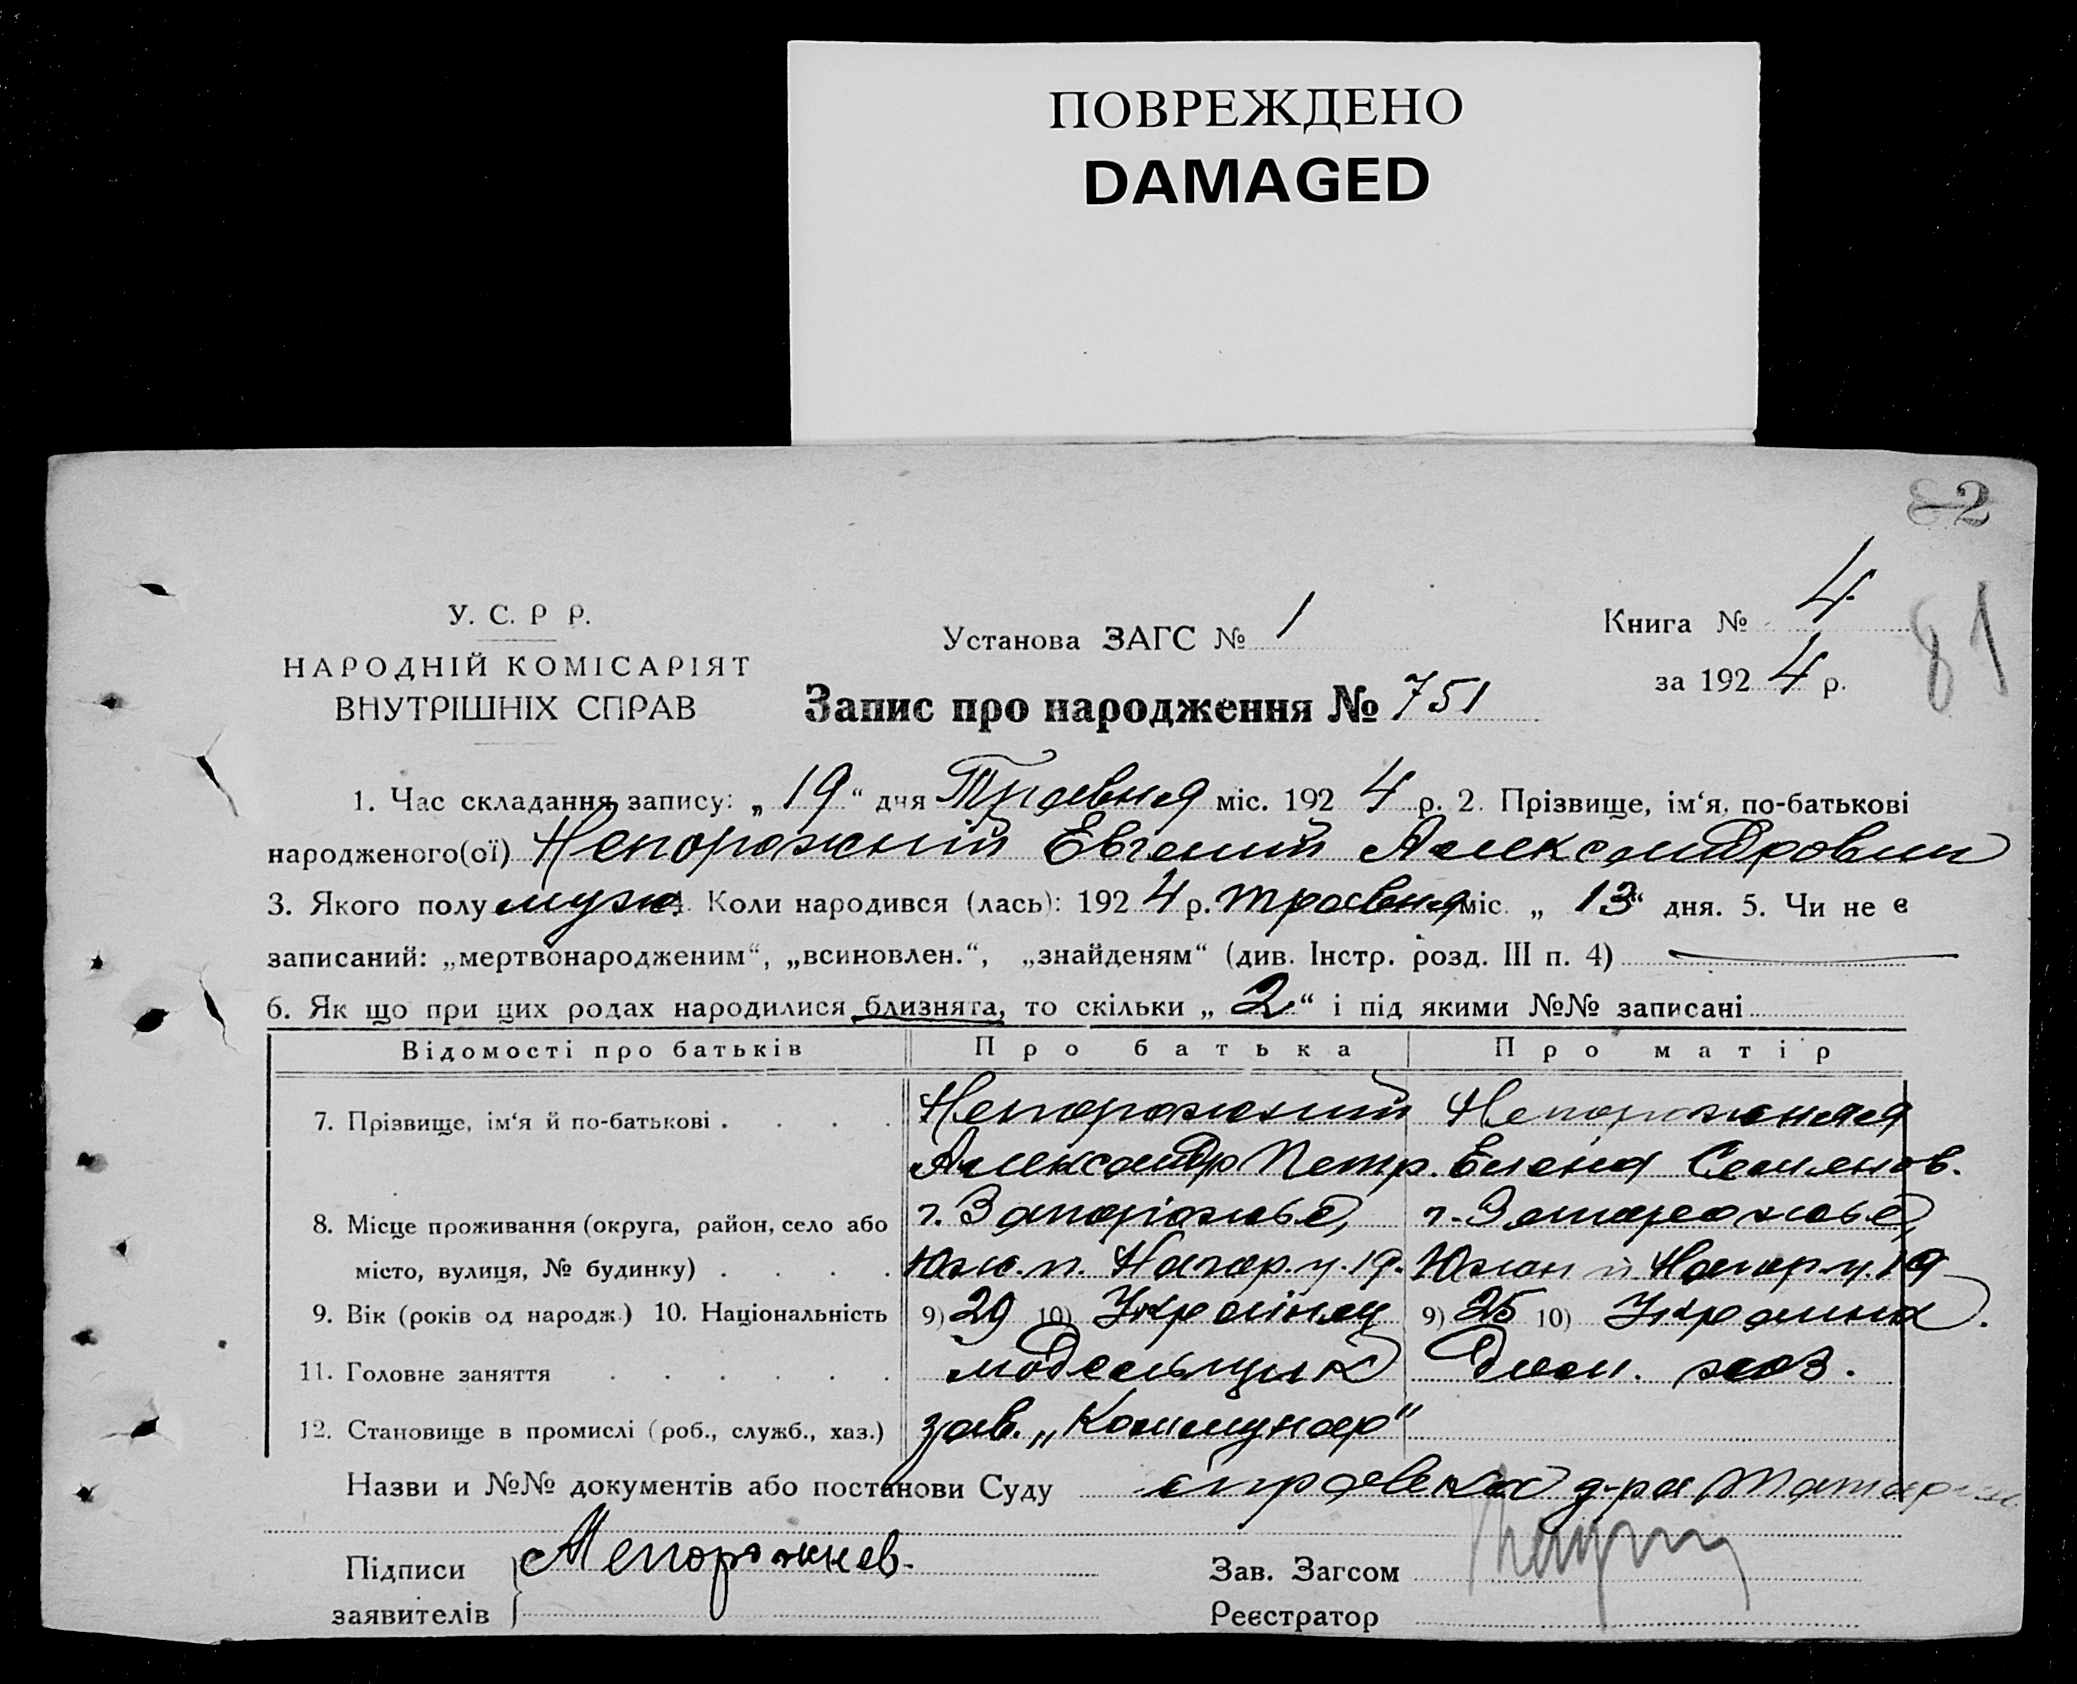 ПОВРЕЖДЕНО
DAMAGED
82
У. С. Р Р.
НАРОДНІЙ КОМІСАРІЯТ
ВНУТРІШНІХ СПРАВ
Установа ЗАГС № 1
Книга № 4
за 1924 р.
81
Запис про народження № 751
1. Час складання запису: „19“ дня Травня міс. 1924 р. 2. Прізвище, ім‘я, по-батькові
народженого(ої) Непорожній Евгений Александрович
3. Якого полу муж. 4. Коли народився (лась): 1924 р. травня міс. „13“ дня. 5. Чи не є
записаний: „мертвонародженим“, „всиновлен.“, „знайденям“ (див. Інстр. розд. III п. 4)
6. Як що при цих родах народилися близнята, то скільки „2“ і під якими №№ записані
Відомості про батьків Про батька Про матір
7. Прізвище, ім‘я й по-батькові . . . . Непорожний Непорожняя
Александр Петр. Елена Семенов.
8. Місце проживання (округа, район, село або г. Запоріжье, г. Запорожье,
місто, вулиця, № будинку) . . . . Юж. п. Нагар. у. 19. Южн п Нагар у. 19
9. Вік (років од народж.) 10. Національність 9) 29 10) Українец 9) 25 10) Украинка.
11. Головне заняття . . . . . . модельщик Дом. хоз.
12. Становище в промислі (роб., служб., хаз.) зав. „Коммунар“
Назви и №№ документів або постанови Суду справка д-ра
Підписи заявителів Непорожнев.
Зав. Загсом
Реєстратор